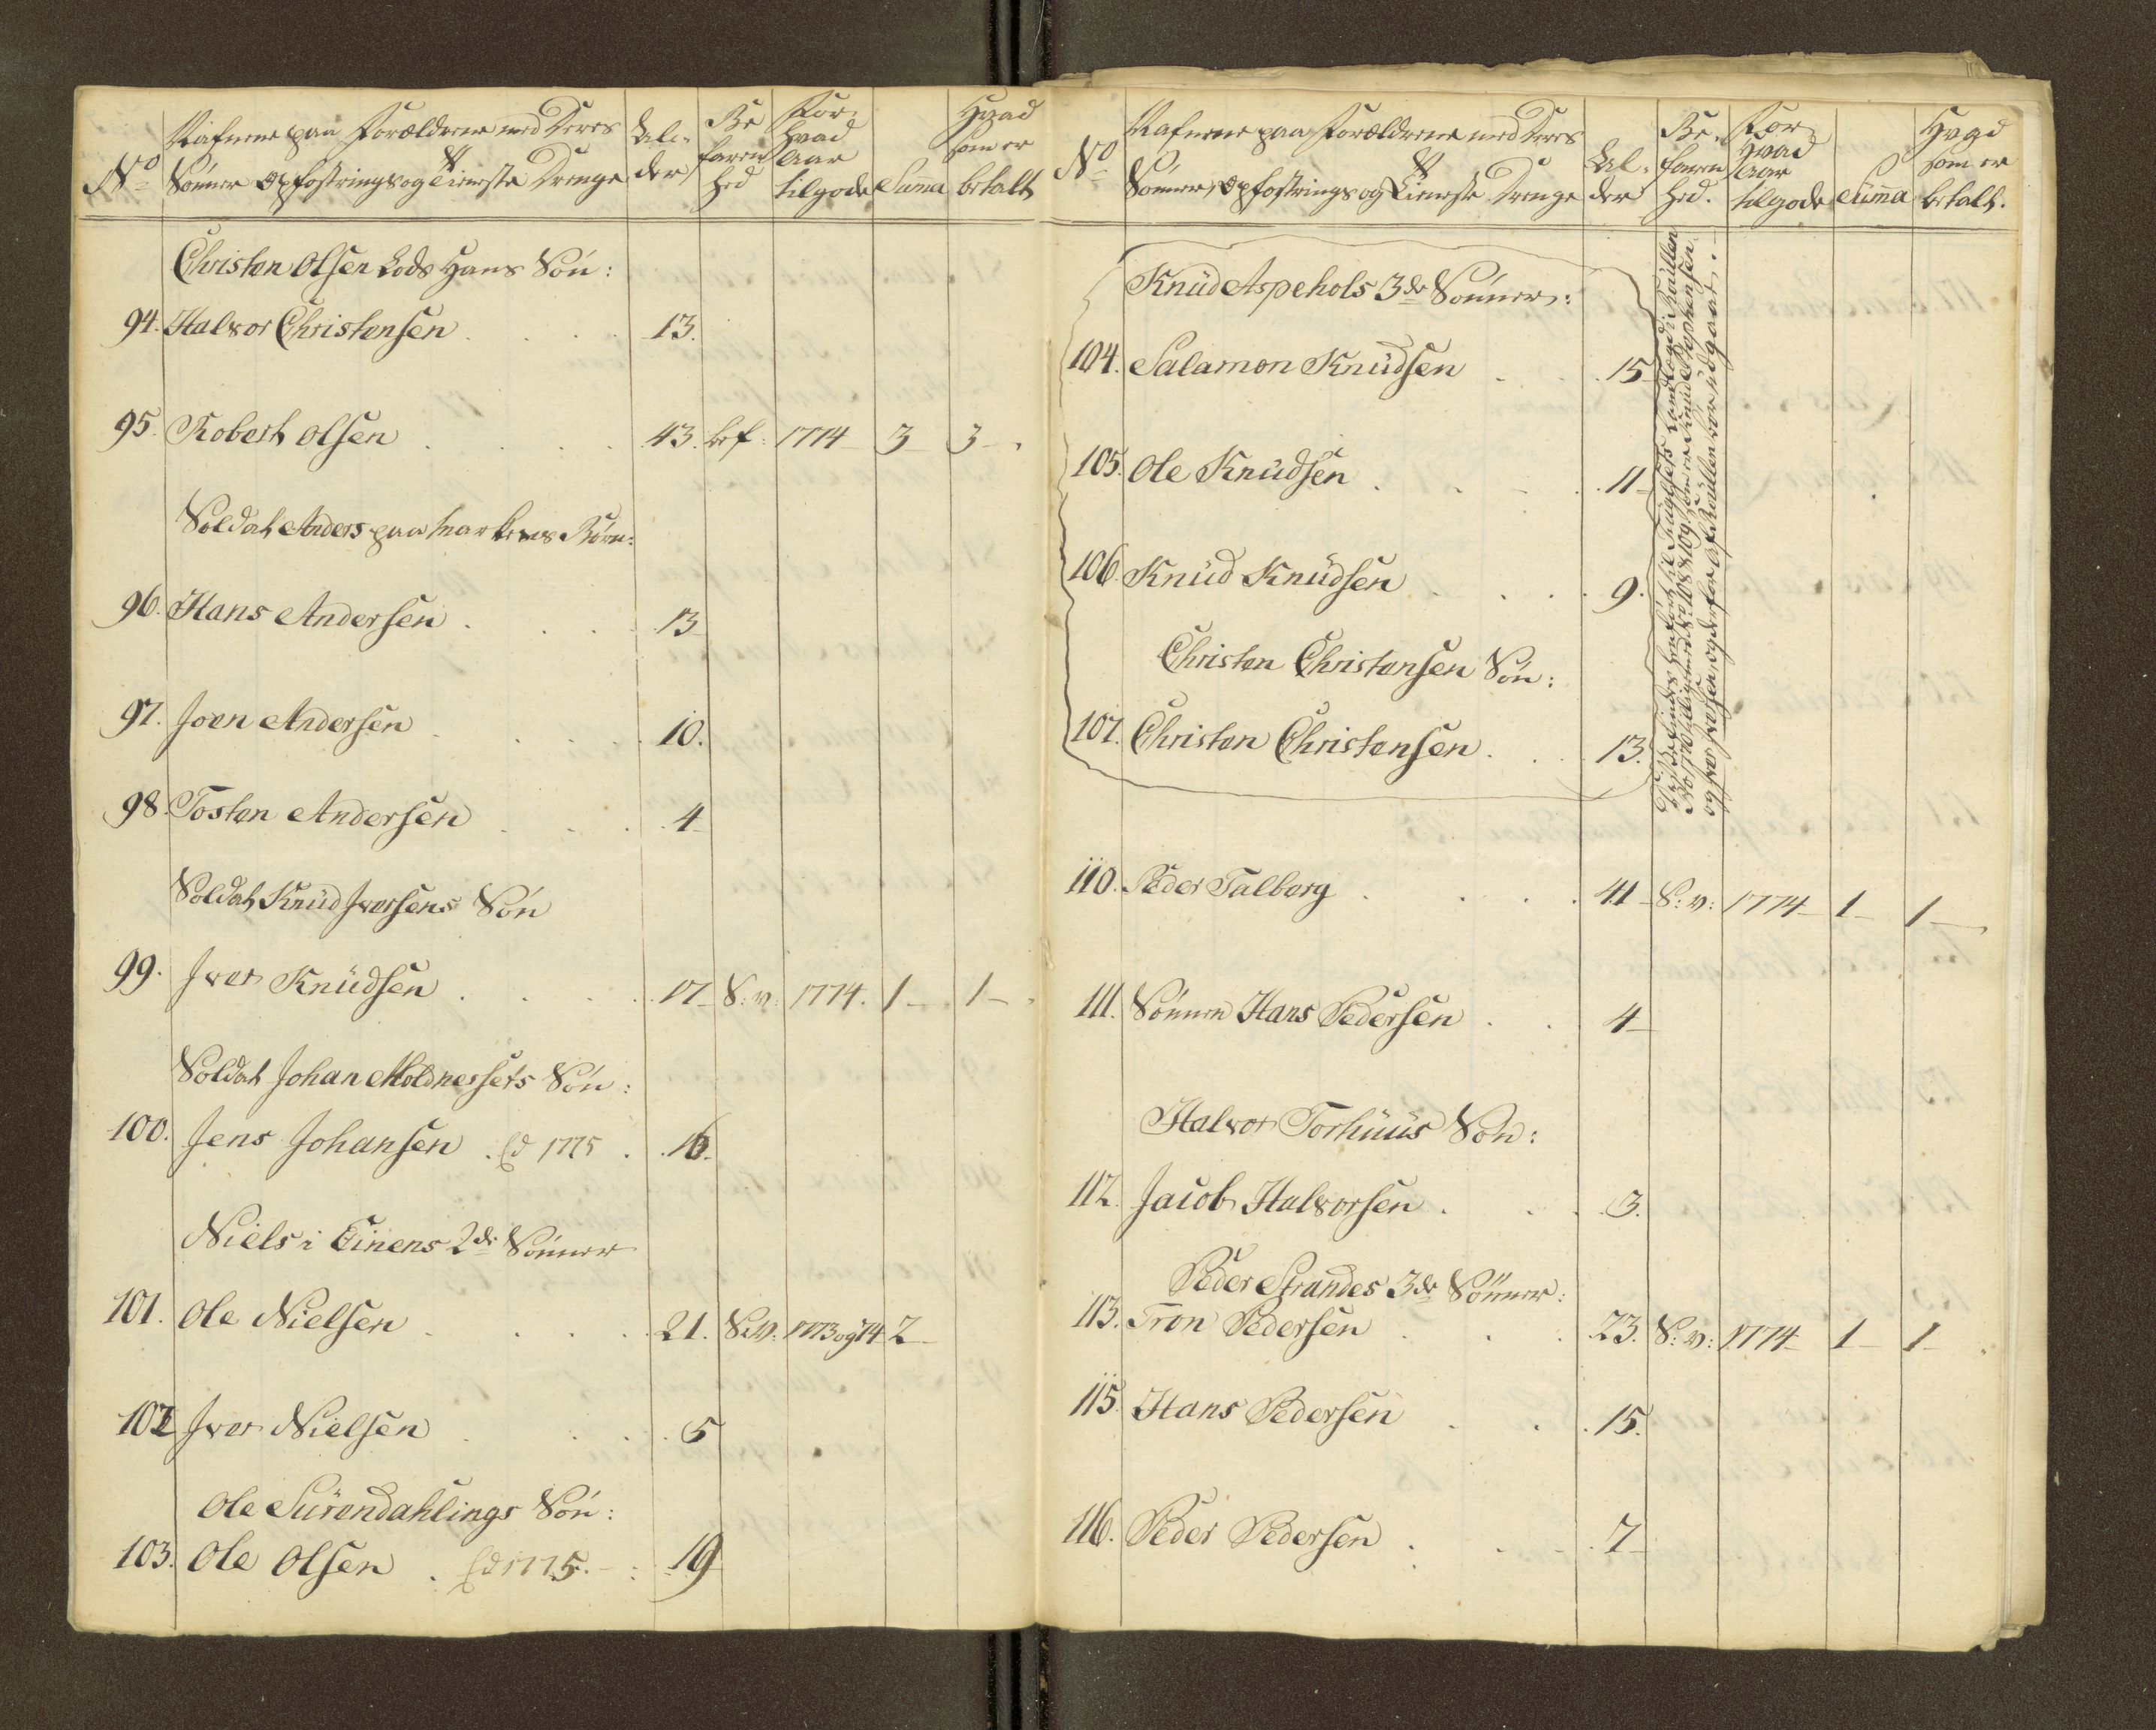 No
Nafnene paa Forældrene med Deres
Sönner Opfostrings og Tieneste Drenge
Al-
der
Be
faren
hed
For
hvad
Aar
tilgode
Suma
Hvad
som er
betalt
Christen Olsen Lods Hans Sön:
94. Halvor Christensen 13.
95. Robert Olsen 43. bef: 1774 3 3
Soldat Anders paa Börn:
96. Hans Andersen 13
97. Joen Andersen 10.
98. Tosten Andersen 4
Soldat Knüd Iversens Sön
99. Iver Knüdsen 17 S: v: 1774. 1 1
Soldat Johan Moldnessets Sön:
100. Jens Johansen 1775 16.
Niels i Einens 2de Sönner
101. Ole Nielsen 21. S: v: 1773 og 74 2
102 Iver Nielsen 5
Ole Sürendahlings Sön:
103. Ole Olsen 1775. 19
No
Nafnene paa Forældrene med Deres
Sönner, Opfostrings og Tieneste Drenge
Al-
der
Be-
faren
hed.
For
hvad
Aar
tilgode
Suma
Hvad
som er
betalt.
Knüd Aspehols 3de Sönner:
104. Salamon Knüdsen 15
105. Ole Knüdsen 11
106. Knüd Knüdsen 9.
Christen Christensen Sön:
107. Christen Christensen 13.
Disse findes henført til Land Lægd i Rullen
No 170 tilligemed No 108 & 109 som er Knüd Stephensen
og Iver Iversen, og derfor af Rüllen bör udgaae.
110. Peder Talberg 41 S: v: 1774 1 1
111. Sönnen Hans Pedersen 4
Halvor Torhüüs Sön:
112. Jacob Halvorsen 3.
Peder Strandes 3de Sönner:
113. Tron Pedersen 23. S: v: 1774 1 1
115. Hans Pedersen 15.
116. Peder Pedersen 7